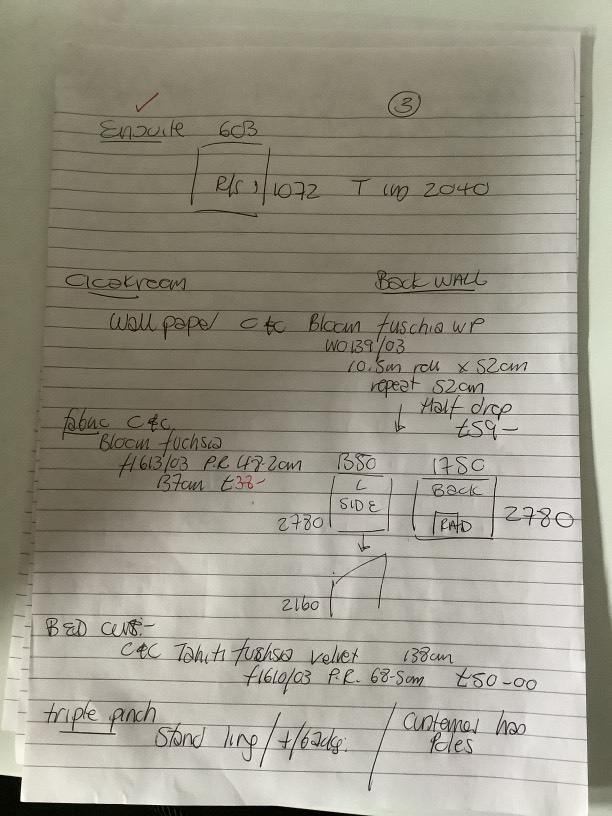 3
Ensuite 603
R/S 1072 T up 2040
Cloakroom BACK WALL
Wallpaper C&C Bloom fuschia WP
W0139/03
10.5m roll x 52cm
repeat 52cm
Half drop
£59-
fabric C&C
Bloom fuchsia
f1613/03 P.R 48.2cm
137cm £38-
1350 1750
L SIDE
BACK
RAD
2780 2780
2160
BED curts:-
C&C Tahiti fuchsia velvet 138cm
f1610/03 P.R. 68-5cm £50-00
triple pinch
Stand ling / t/backs.
customer has
Poles